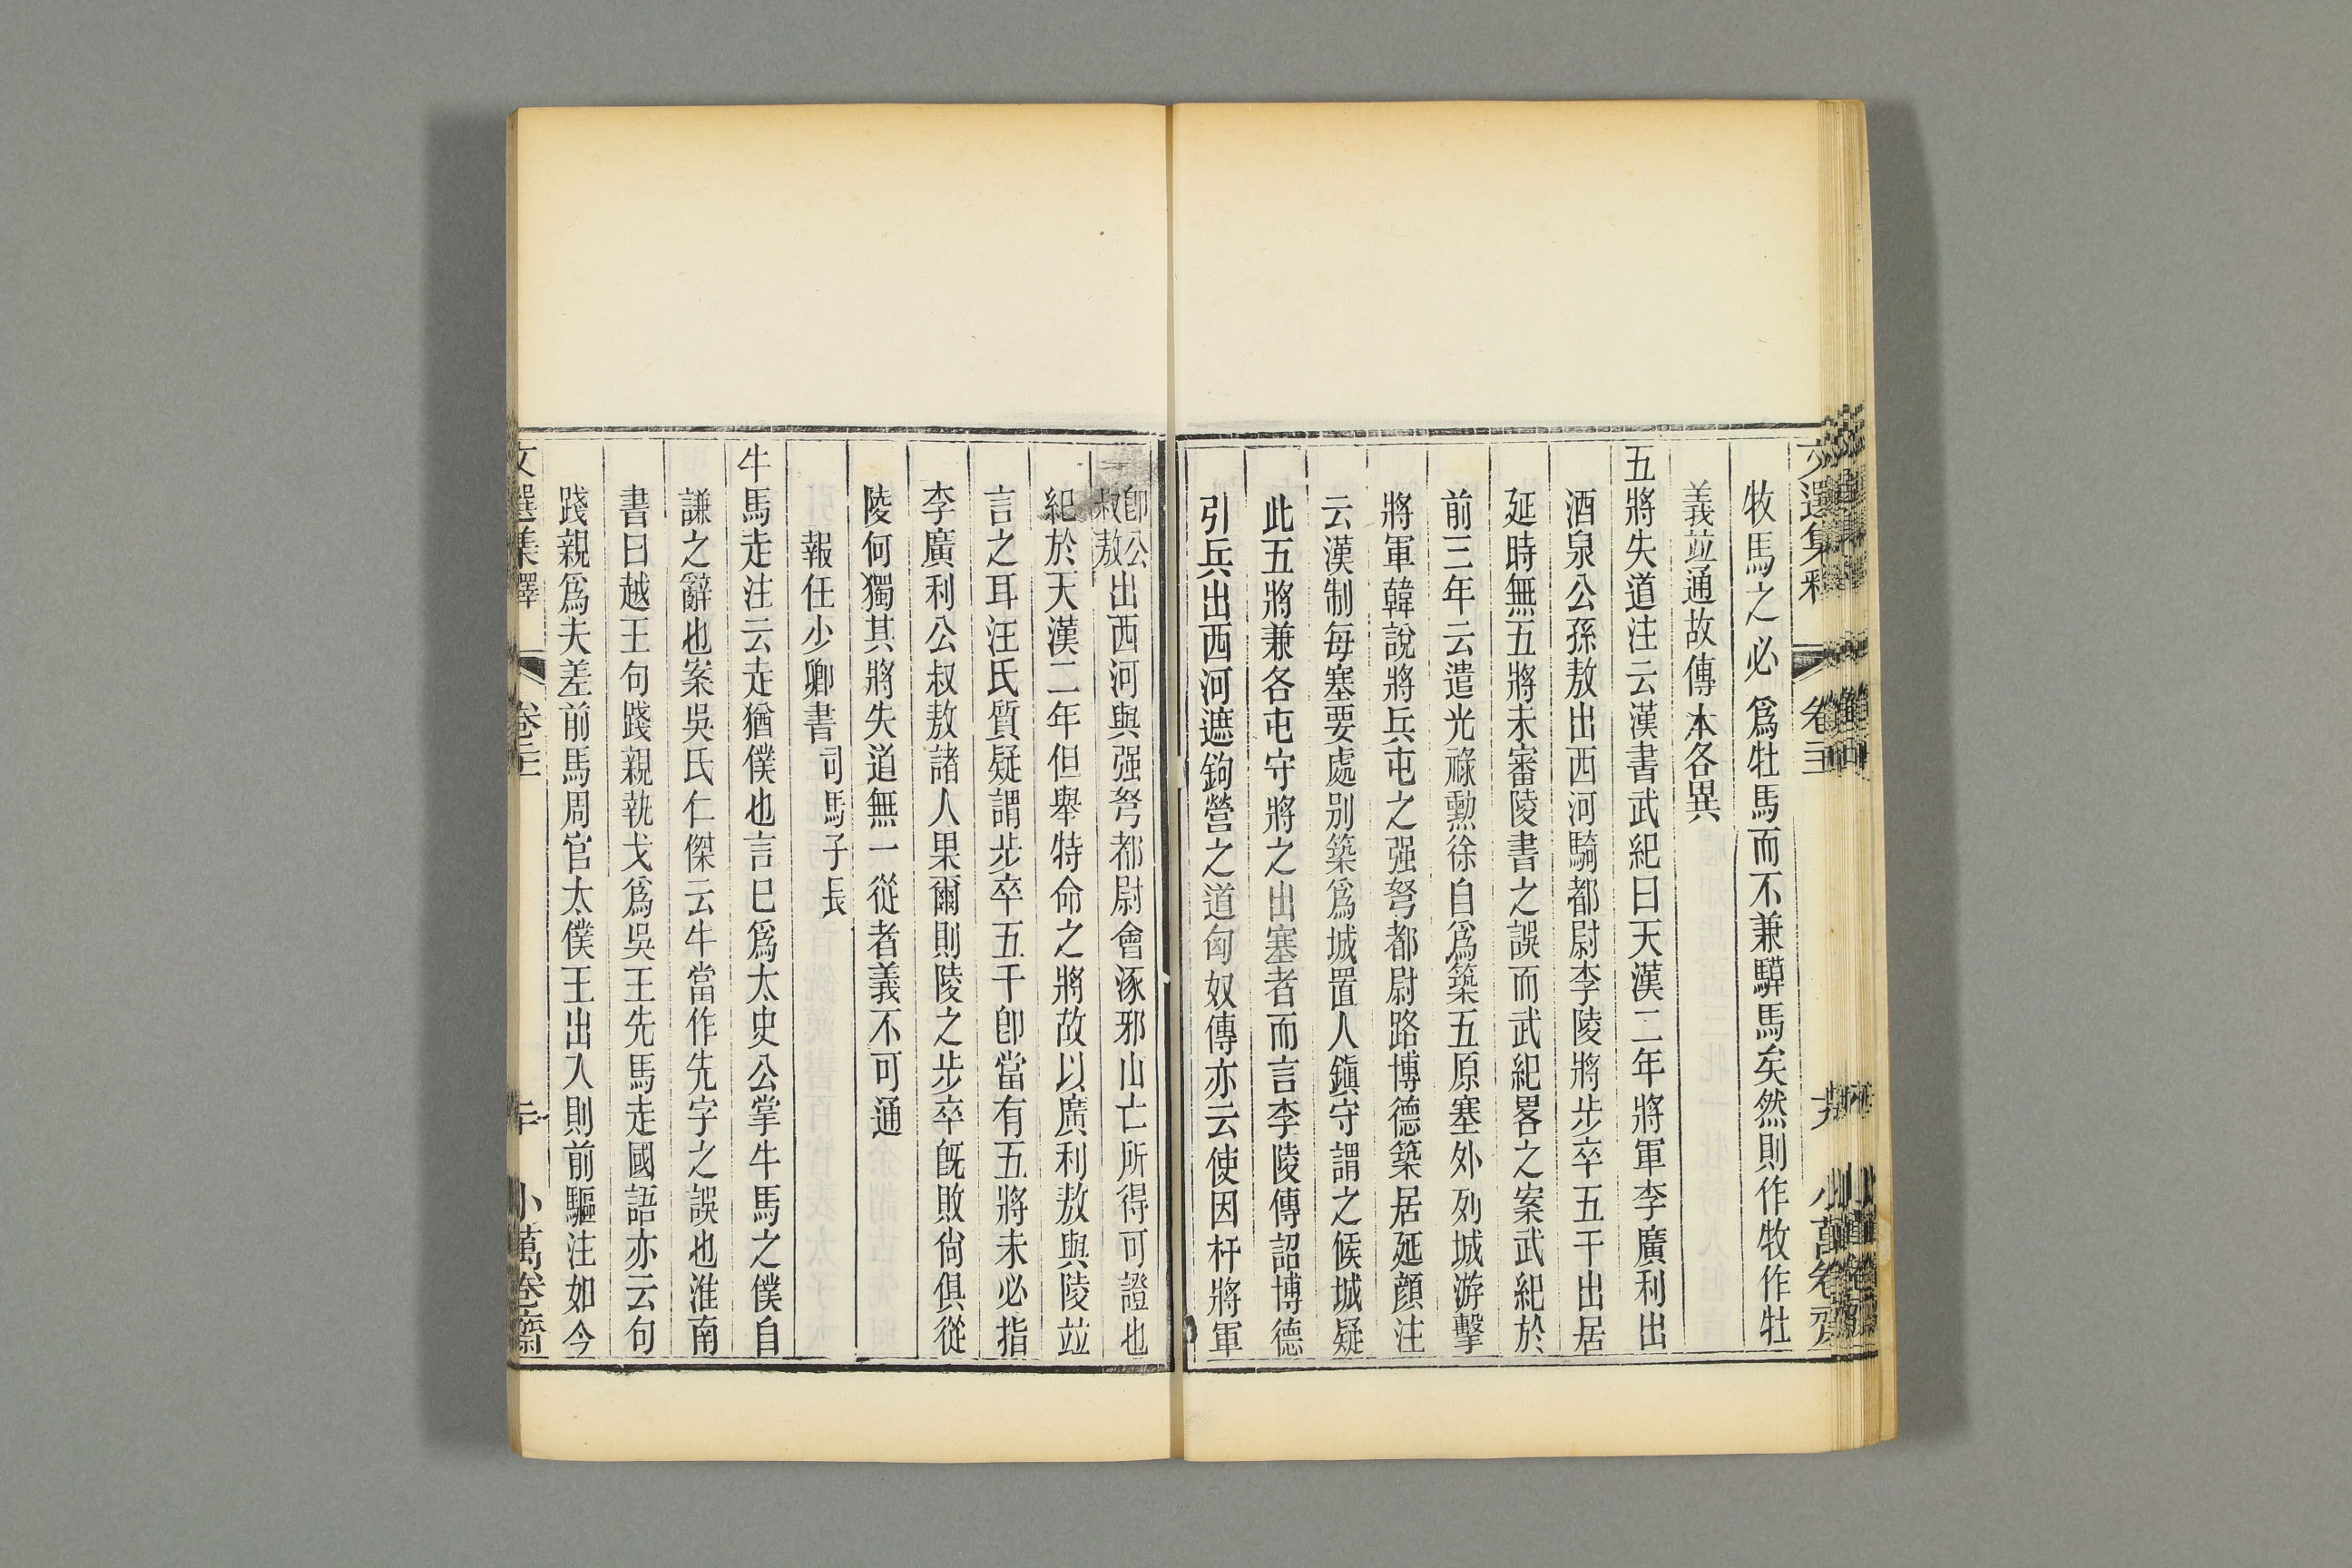 牧馬之必爲牡馬而不兼騲馬矣然則作牧作牡
義竝通故傳本各異
五將失道注云漢書武紀曰天漢二年將軍李廣利出
酒泉公孫敖出西河騎都尉李陵將步卒五千出居
延時無五將未審陵書之誤而武紀畧之案武紀於
前三年云遣光祿勲徐自爲築五原塞外列城游擊
將軍韓說將兵屯之强弩都尉路博德築居延顏注
云漢制每塞要處别築爲城置人鎮守謂之候城疑
此五將兼各屯守將之出塞者而言李陵傳詔博德
引兵出西河遮鉤營之道匈奴傳亦云使因杅將軍
卽公
叔敖出西河與强弩都尉會涿邪山亡所得可證也
紀於天漢二年但舉特命之將故以廣利敖與陵竝
言之耳汪氏質疑謂步卒五千卽當有五將未必指
李廣利公叔敖諸人果爾則陵之步卒旣敗尙俱從
陵何獨其將失道無一從者義不可通
報任少卿書 司馬子長
牛馬走注云走猶僕也言已爲太史公掌牛馬之僕自
謙之辭也案吳氏仁傑云牛當作先字之誤也淮南
書曰越王句踐親執戈爲吳王先馬走國語亦云句
踐親爲夫差前馬周官太僕王出入則前驅注如今
文選集釋 卷二十二 二十 小萬卷齋